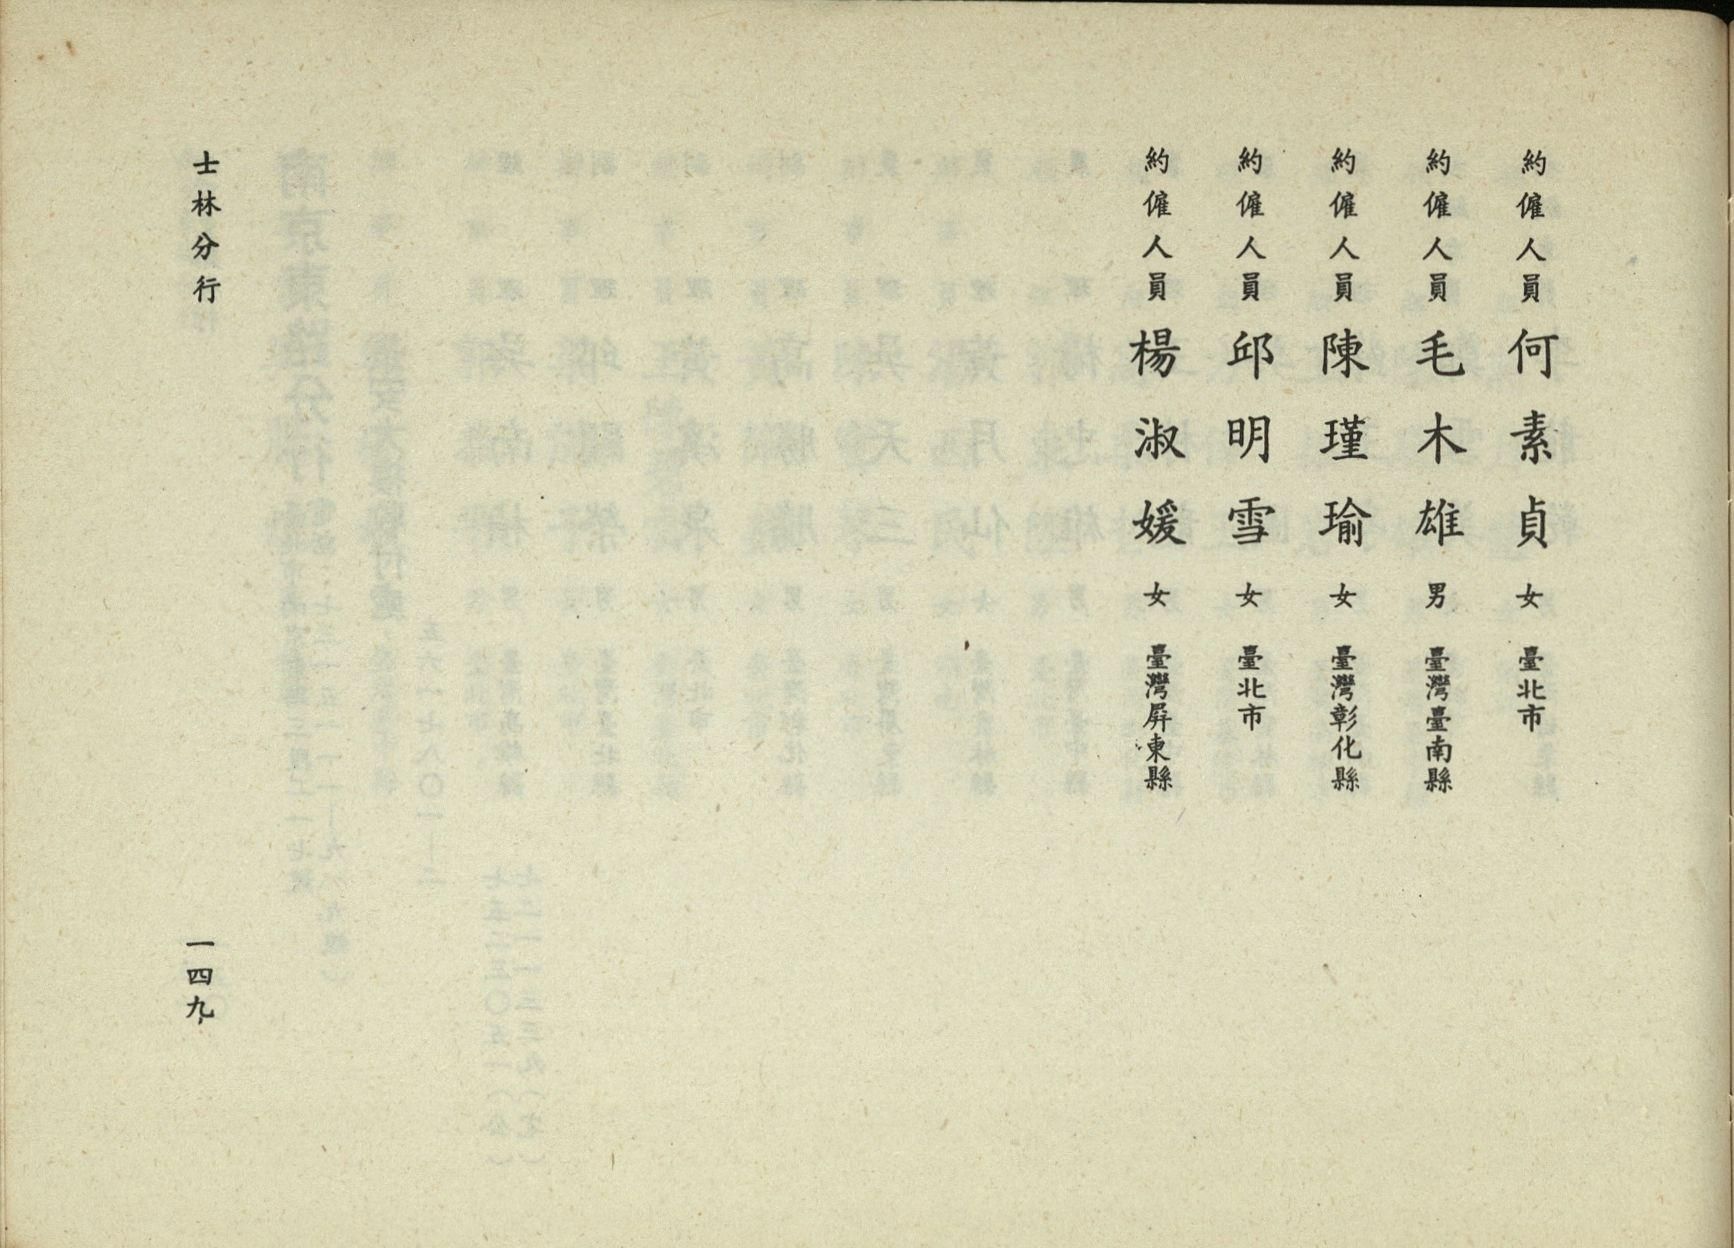 約僱人員 何素貞 女 臺北市
約僱人員 毛木雄 男 臺灣臺南縣
約僱人員 陳瑾瑜 女 臺灣彰化縣
約僱人員 邱明雪 女 臺北市
約僱人員 楊淑媛 女 臺灣屏東縣
士林分行
一四九